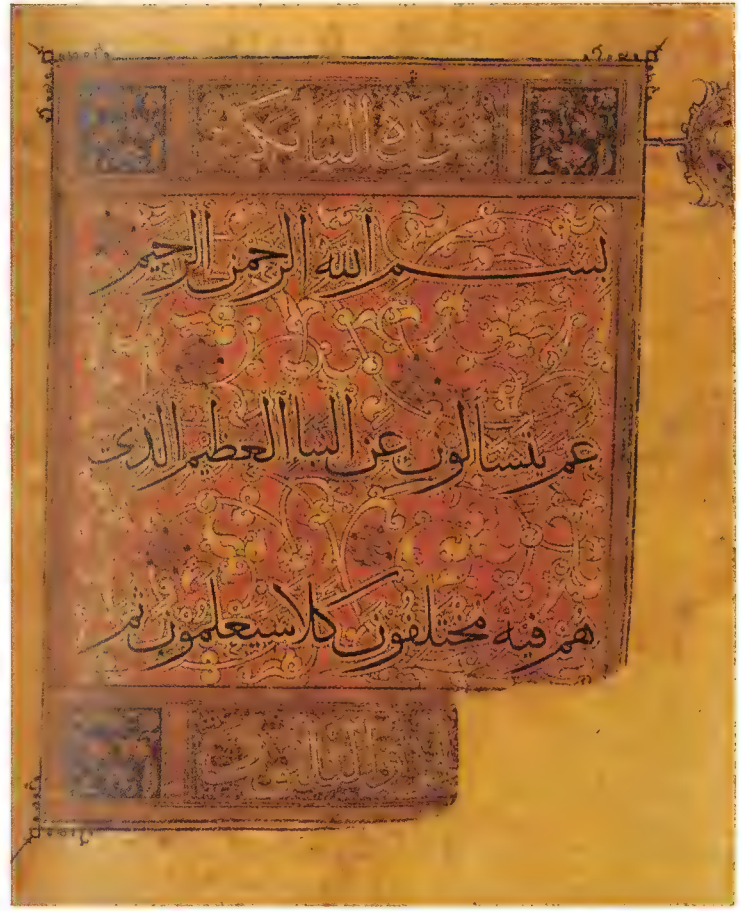 سورة النبا مكية
بسم الله الرحمن الرحيم
عم يتساالون عن النبا العظيم الذى
هم فيه مختلفون كلا سيعلمون ثم